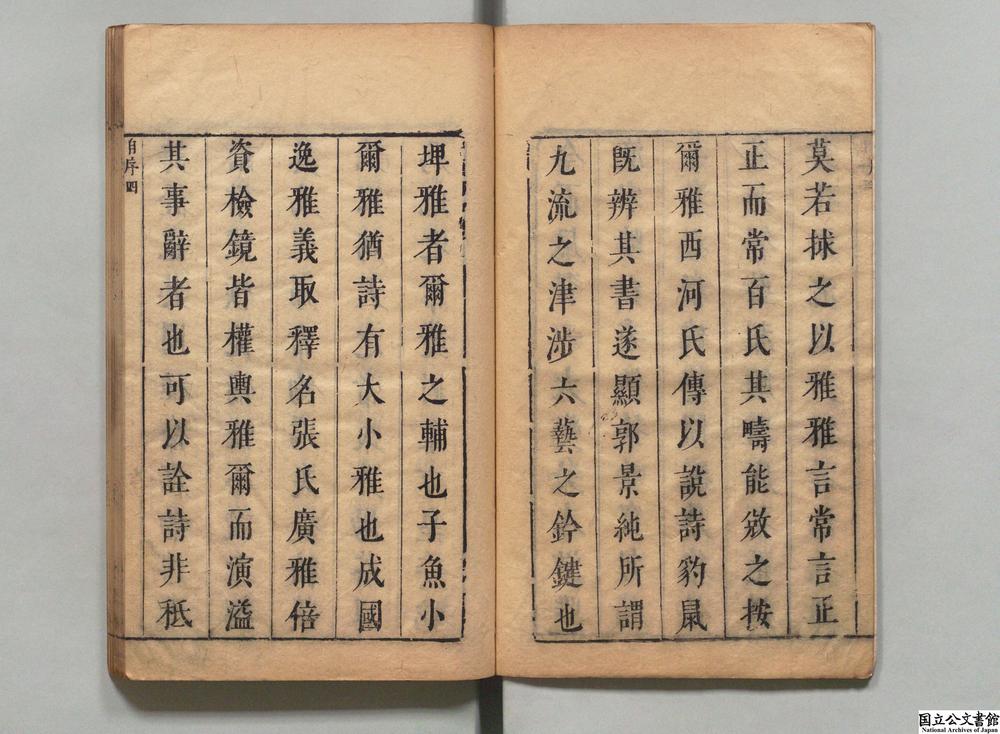 莫若捄之以雅雅言常言正
正而常百氏其疇能敓之按
爾雅西河氏傳以說詩豹鼠
旣辨其書遂顯郭景純所謂
九流之津涉六藝之鈐鍵也
埤雅者爾雅之輔也子魚小
爾雅猶詩有大小雅也成國
逸雅義取釋名張氏廣雅倍
資檢鏡皆權輿雅爾而演溢
其事辭者也可以詮詩非秪
自序四
国立公文書館
National Archives of Japan